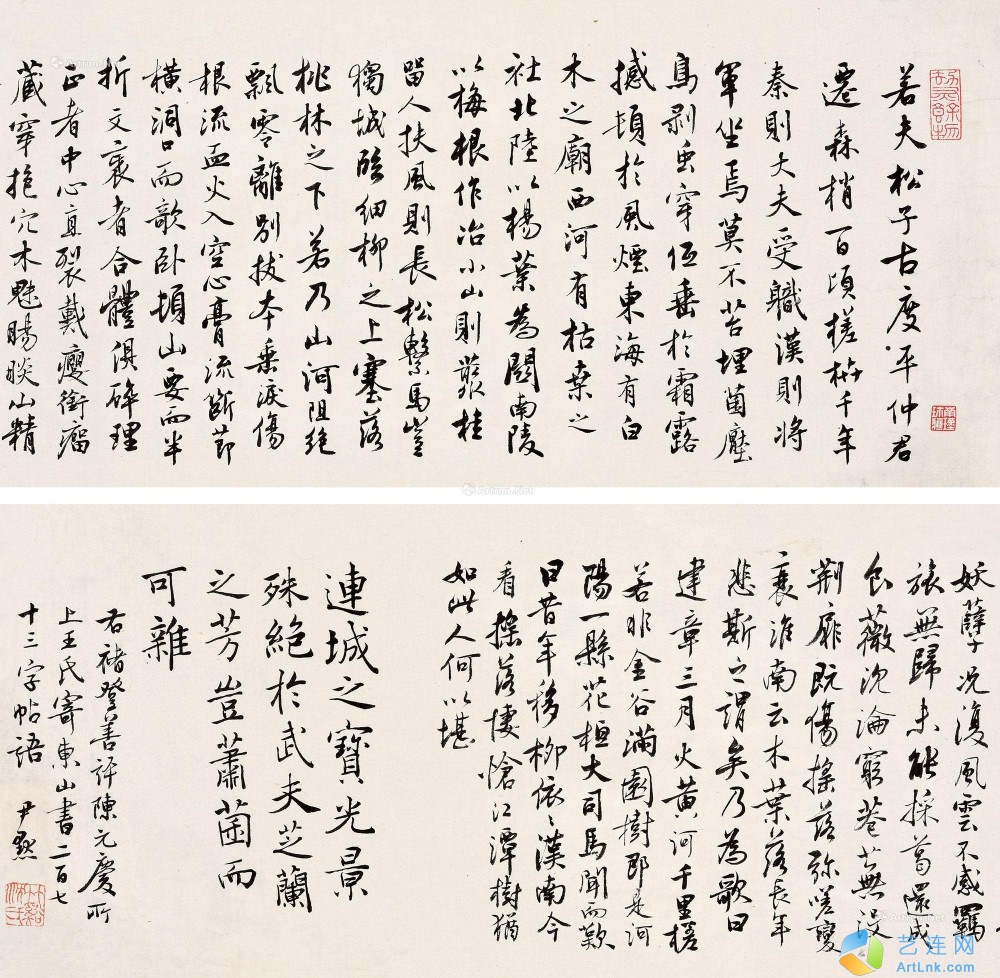 若夫松子古度平仲君
遷森梢百頃槎枿千年
秦則大夫受職漢則將
軍坐焉莫不苔埋菌壓
鳥剥虫穿低垂於霜露
撼頓於風煙東海有白
木之廟西河有枯桒之
社北陸以楊葉為關南陵
以梅根作冶小山則叢桂
留人扶風則長松繫馬豈
獨城臨細柳之上塞落
桃林之下若乃山河阻絶
飄零離別拔本垂淚傷
根流血火入空心膏流断節
橫洞口而欹卧頓山要而半
折文衺者合體俱碎理
正者中心直裂戴癭銜瘤
藏穿抱穴木魅睗睒山精
妖孽況復風雲不感羈
旅無歸未能採葛還成
食薇沉淪窮巷蕪沒
荊扉既傷搖落弥嗟變
衰淮南云木葉落長年
悲斯之謂矣乃為歌曰
建章三月火黃河千里槎
若非金谷滿園樹即是河
陽一縣花桓大司馬聞而歎
曰昔年移柳依〻漢南今
看搖落悽愴江潭樹猶
如此人何以堪
連城之寶光景
殊絕於武夫芝蘭
之芳豈蕭茵而
可雜
右褚登善評陳元慶所
上王氏寄東山書二百七
十三字帖語 尹默
艺连网
ArtLnk.com